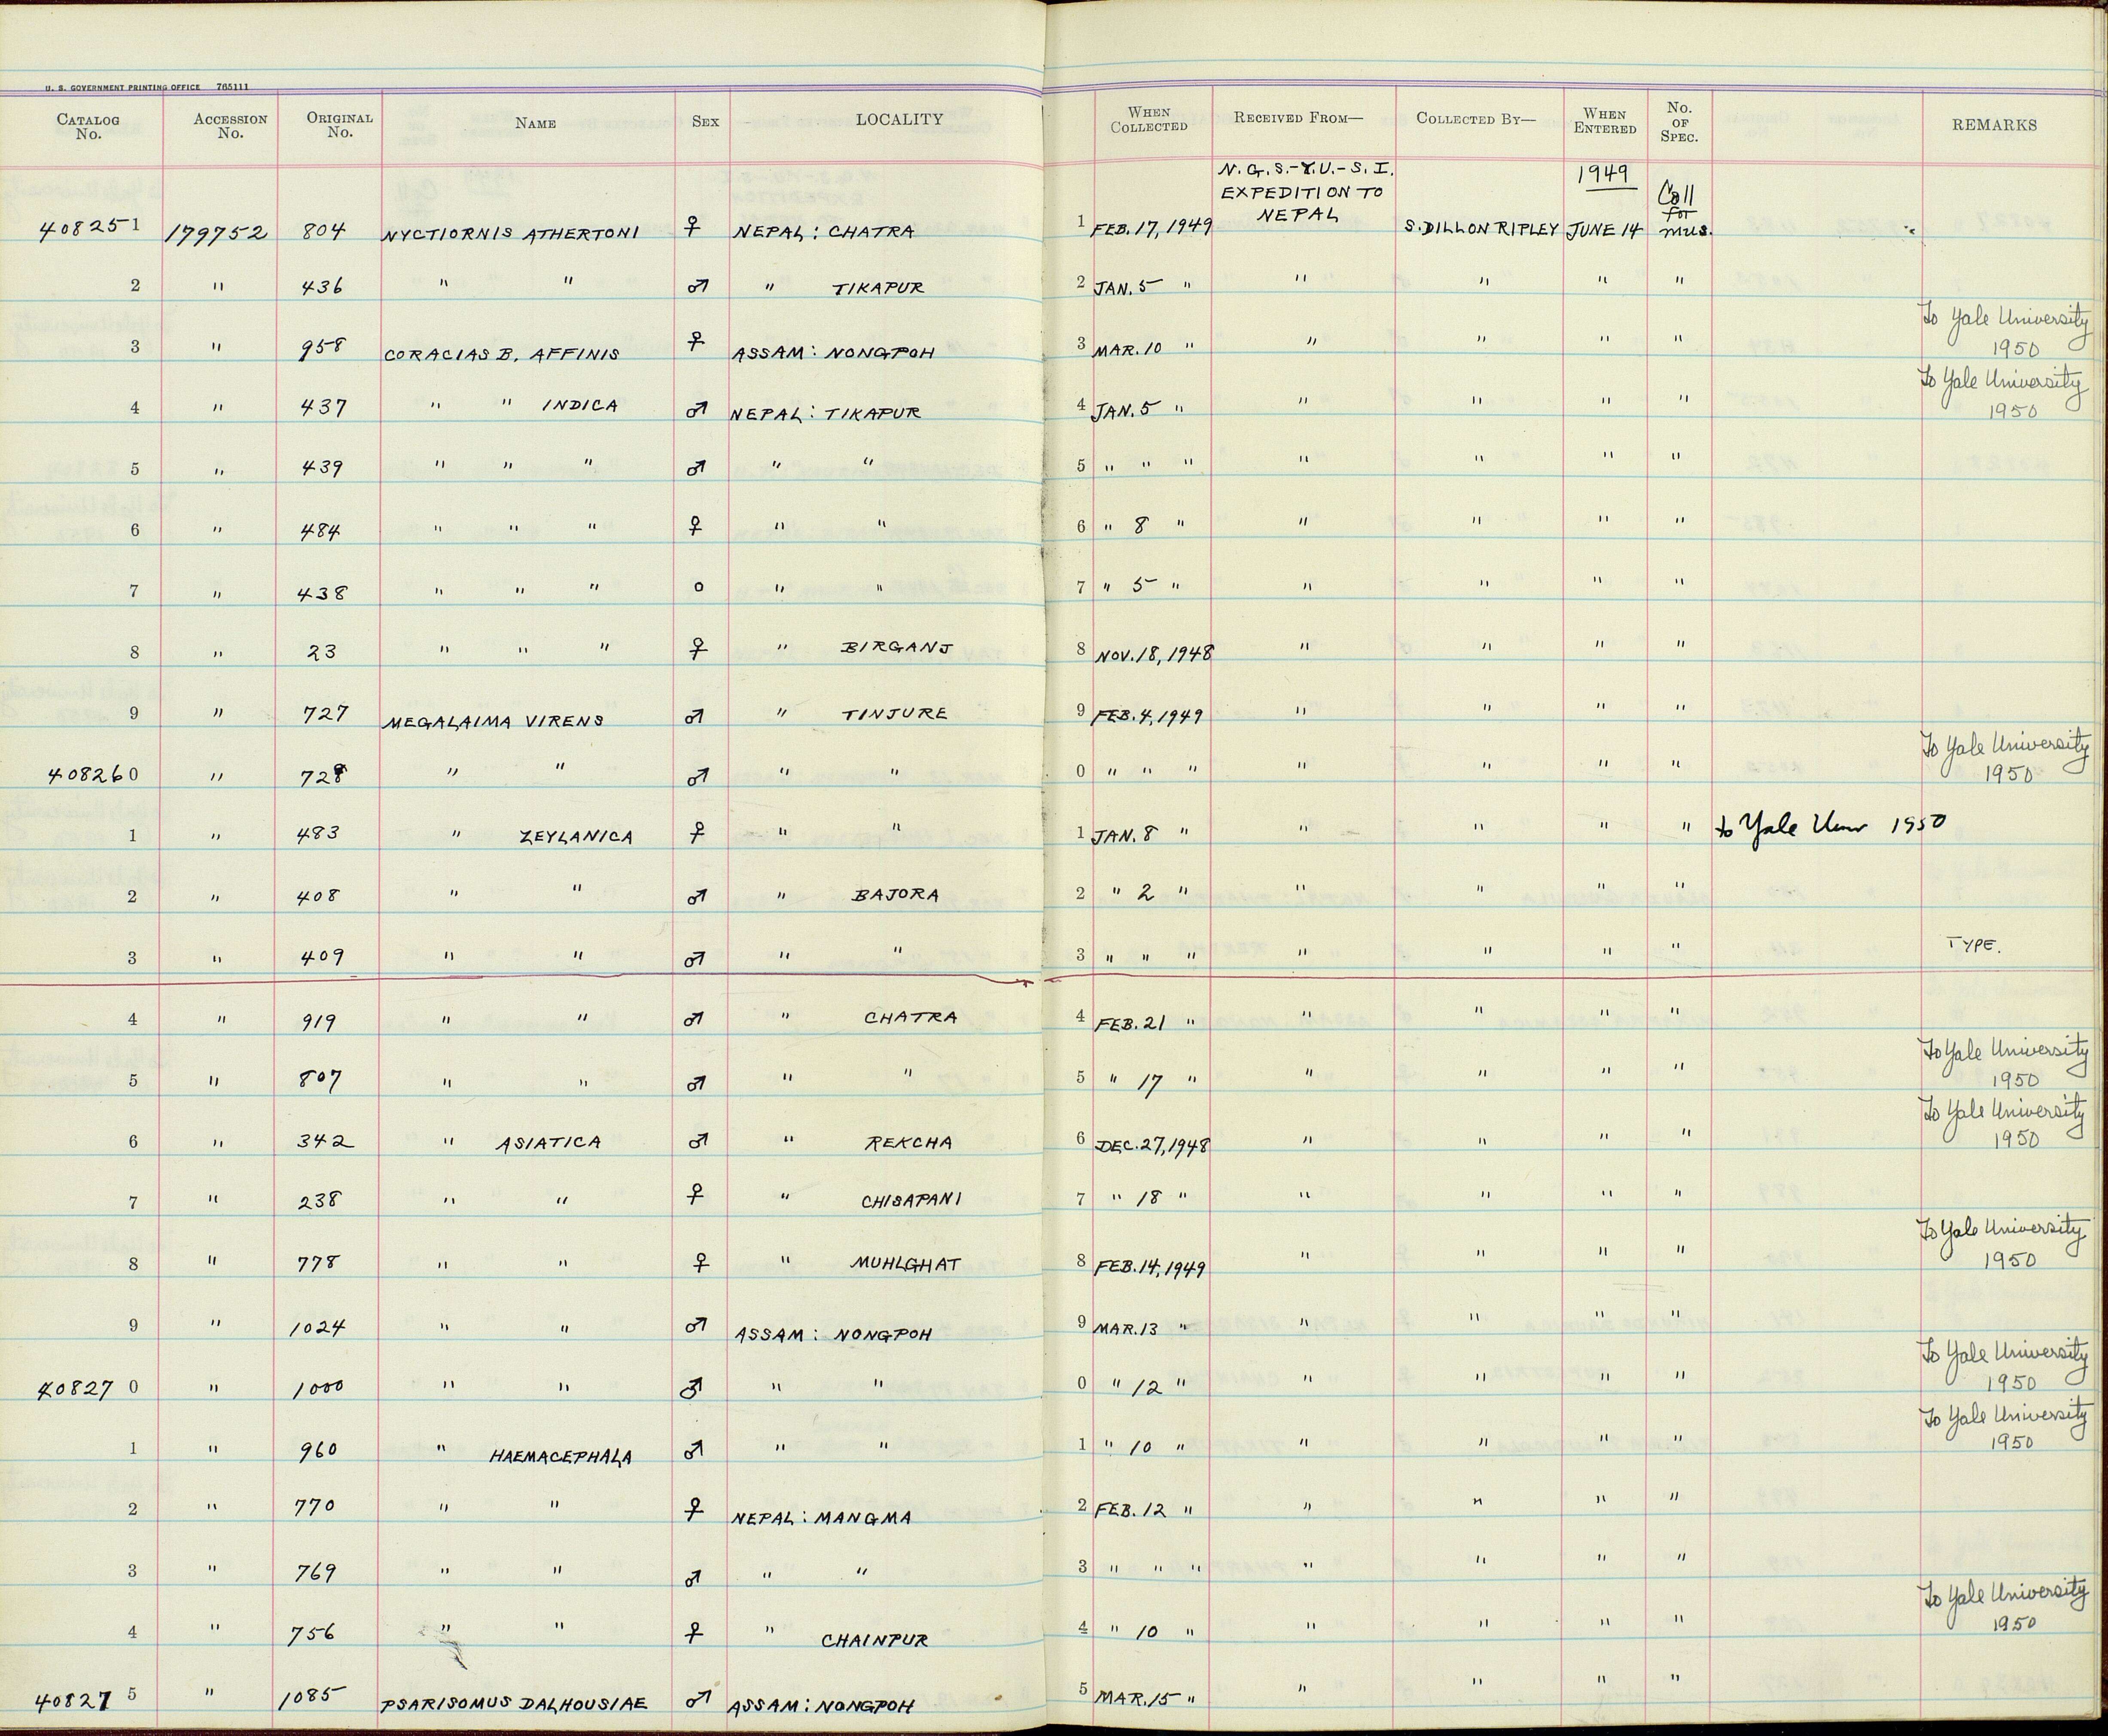 U. S. GOVERNMENT PRINTING OFFICE 765111
CATALOG No. ACCESSION No. ORIGINAL No. NAME SEX LOCALITY WHEN COLLECTED RECEIVED FROM— COLLECTED BY— WHEN ENTERED No. OF SPEC. REMARKS
N.G.S.-Y.U.-S.I. EXPEDITION TO NEPAL 1949 Call for mus.
408251 179752 804 NYCTIORNIS ATHERTONI ♀ NEPAL: CHATRA 1 FEB. 17, 1949 S. DILLON RIPLEY JUNE 14
2 " 436 " " ♂ " TIKAPUR 2 JAN. 5 " " " " "
3 " 958 CORACIAS B. AFFINIS ♀ ASSAM: NONGPOH 3 MAR. 10 " " " " " To Yale University 1950
4 " 437 " " INDICA ♂ NEPAL: TIKAPUR 4 JAN. 5 " " " " " To Yale University 1950
5 " 439 " " " ♂ " " 5 " " " " " " "
6 " 484 " " " ♀ " " 6 " 8 " " " " "
7 " 438 " " " o " " 7 " 5 " " " " "
8 " 23 " " " ♀ " BIRGANJ 8 NOV. 18, 1948 " " " "
9 " 727 MEGALAIMA VIRENS ♂ " TINJURE 9 FEB. 4, 1949 " " " "
408260 " 728 " " ♂ " " 0 " " " " " " " To Yale University 1950
1 " 483 " ZEYLANICA ♀ " " 1 JAN. 8 " " " " " to Yale Univ 1950
2 " 408 " " ♂ " BAJORA 2 " 2 " " " " "
3 " 409 " " ♂ " " 3 " " " " " " " TYPE.
4 " 919 " " ♂ " CHATRA 4 FEB. 21 " " " " "
5 " 807 " " ♂ " " 5 " 17 " " " " " To Yale University 1950
6 " 342 " ASIATICA ♂ " REKCHA 6 DEC. 27, 1948 " " " " To Yale University 1950
7 " 238 " " ♀ " CHISAPANI 7 " 18 " " " " "
8 " 778 " " ♀ " MUHLGHAT 8 FEB. 14, 1949 " " " " To Yale University 1950
9 " 1024 " " ♂ ASSAM: NONGPOH 9 MAR. 13 " " " " "
408270 " 1000 " " ♂ " " 0 " 12 " " " " " To Yale University 1950
1 " 960 " HAEMACEPHALA ♂ " " 1 " 10 " " " " " To Yale University 1950
2 " 770 " " ♀ NEPAL: MANGMA 2 FEB. 12 " " " " "
3 " 769 " " ♂ " " 3 " " " " " " "
4 " 756 " " ♀ " CHAINPUR 4 " 10 " " " " " To Yale University 1950
408275 " 1085 PSARISOMUS DALHOUSIAE ♂ ASSAM: NONGPOH 5 MAR. 15 " " " " "